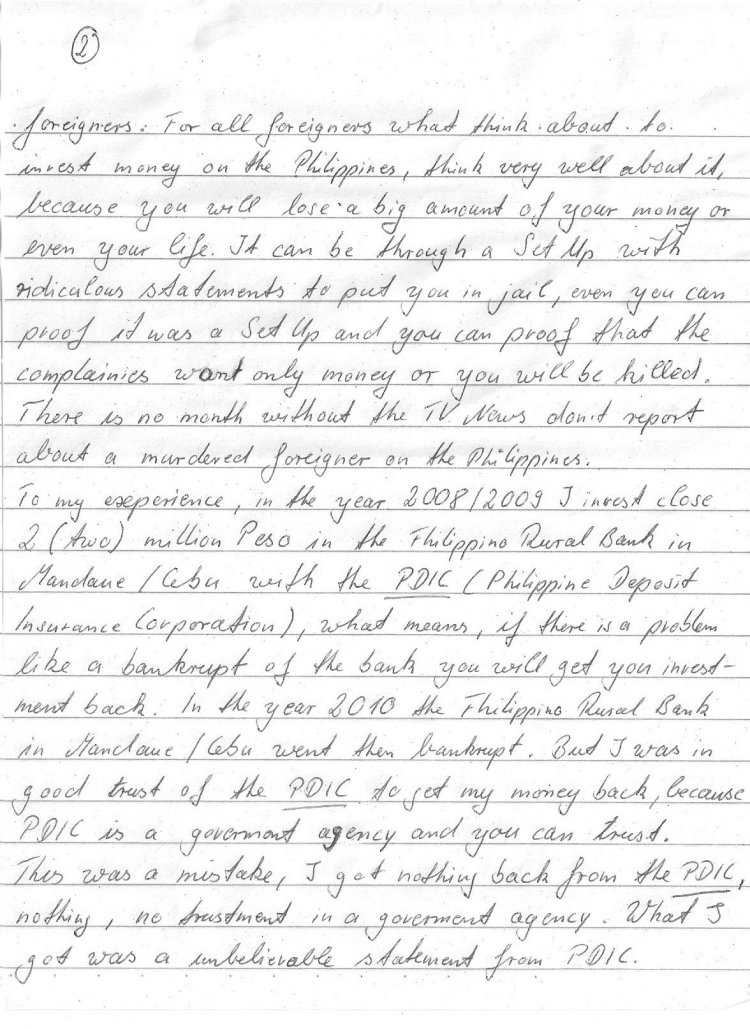 2
foreigners: For all foreigners what think about to
invest money on the Philippines, think very well about it,
because you will lose a big amount of your money or
even your life. It can be through a Set Up with
ridiculous statements to put you in jail, even you can
proof it was a Set Up and you can proof that the
complainies want only money or you will be killed.
There is no month without the TV News don't report
about a murdered foreigner on the Philippines.
To my experience, in the year 2008/2009 I invest close
2 (two) million Peso in the Fhilippino Rural Bank in
Mandaue / Cebu with the PDIC (Philippine Deposit
Insurance Corporation), what means, if there is a problem
like a bankrupt of the bank you will get you invest-
ment back. In the year 2010 the Fhilippino Rural Bank
in Mandaue / Cebu went then bankrupt. But I was in
good trust of the PDIC to get my money back, because
PDIC is a goverment agency and you can trust.
This was a mistake, I got nothing back from the PDIC,
nothing, no trustment in a goverment agency. What I
got was a unbelievable statement from PDIC.